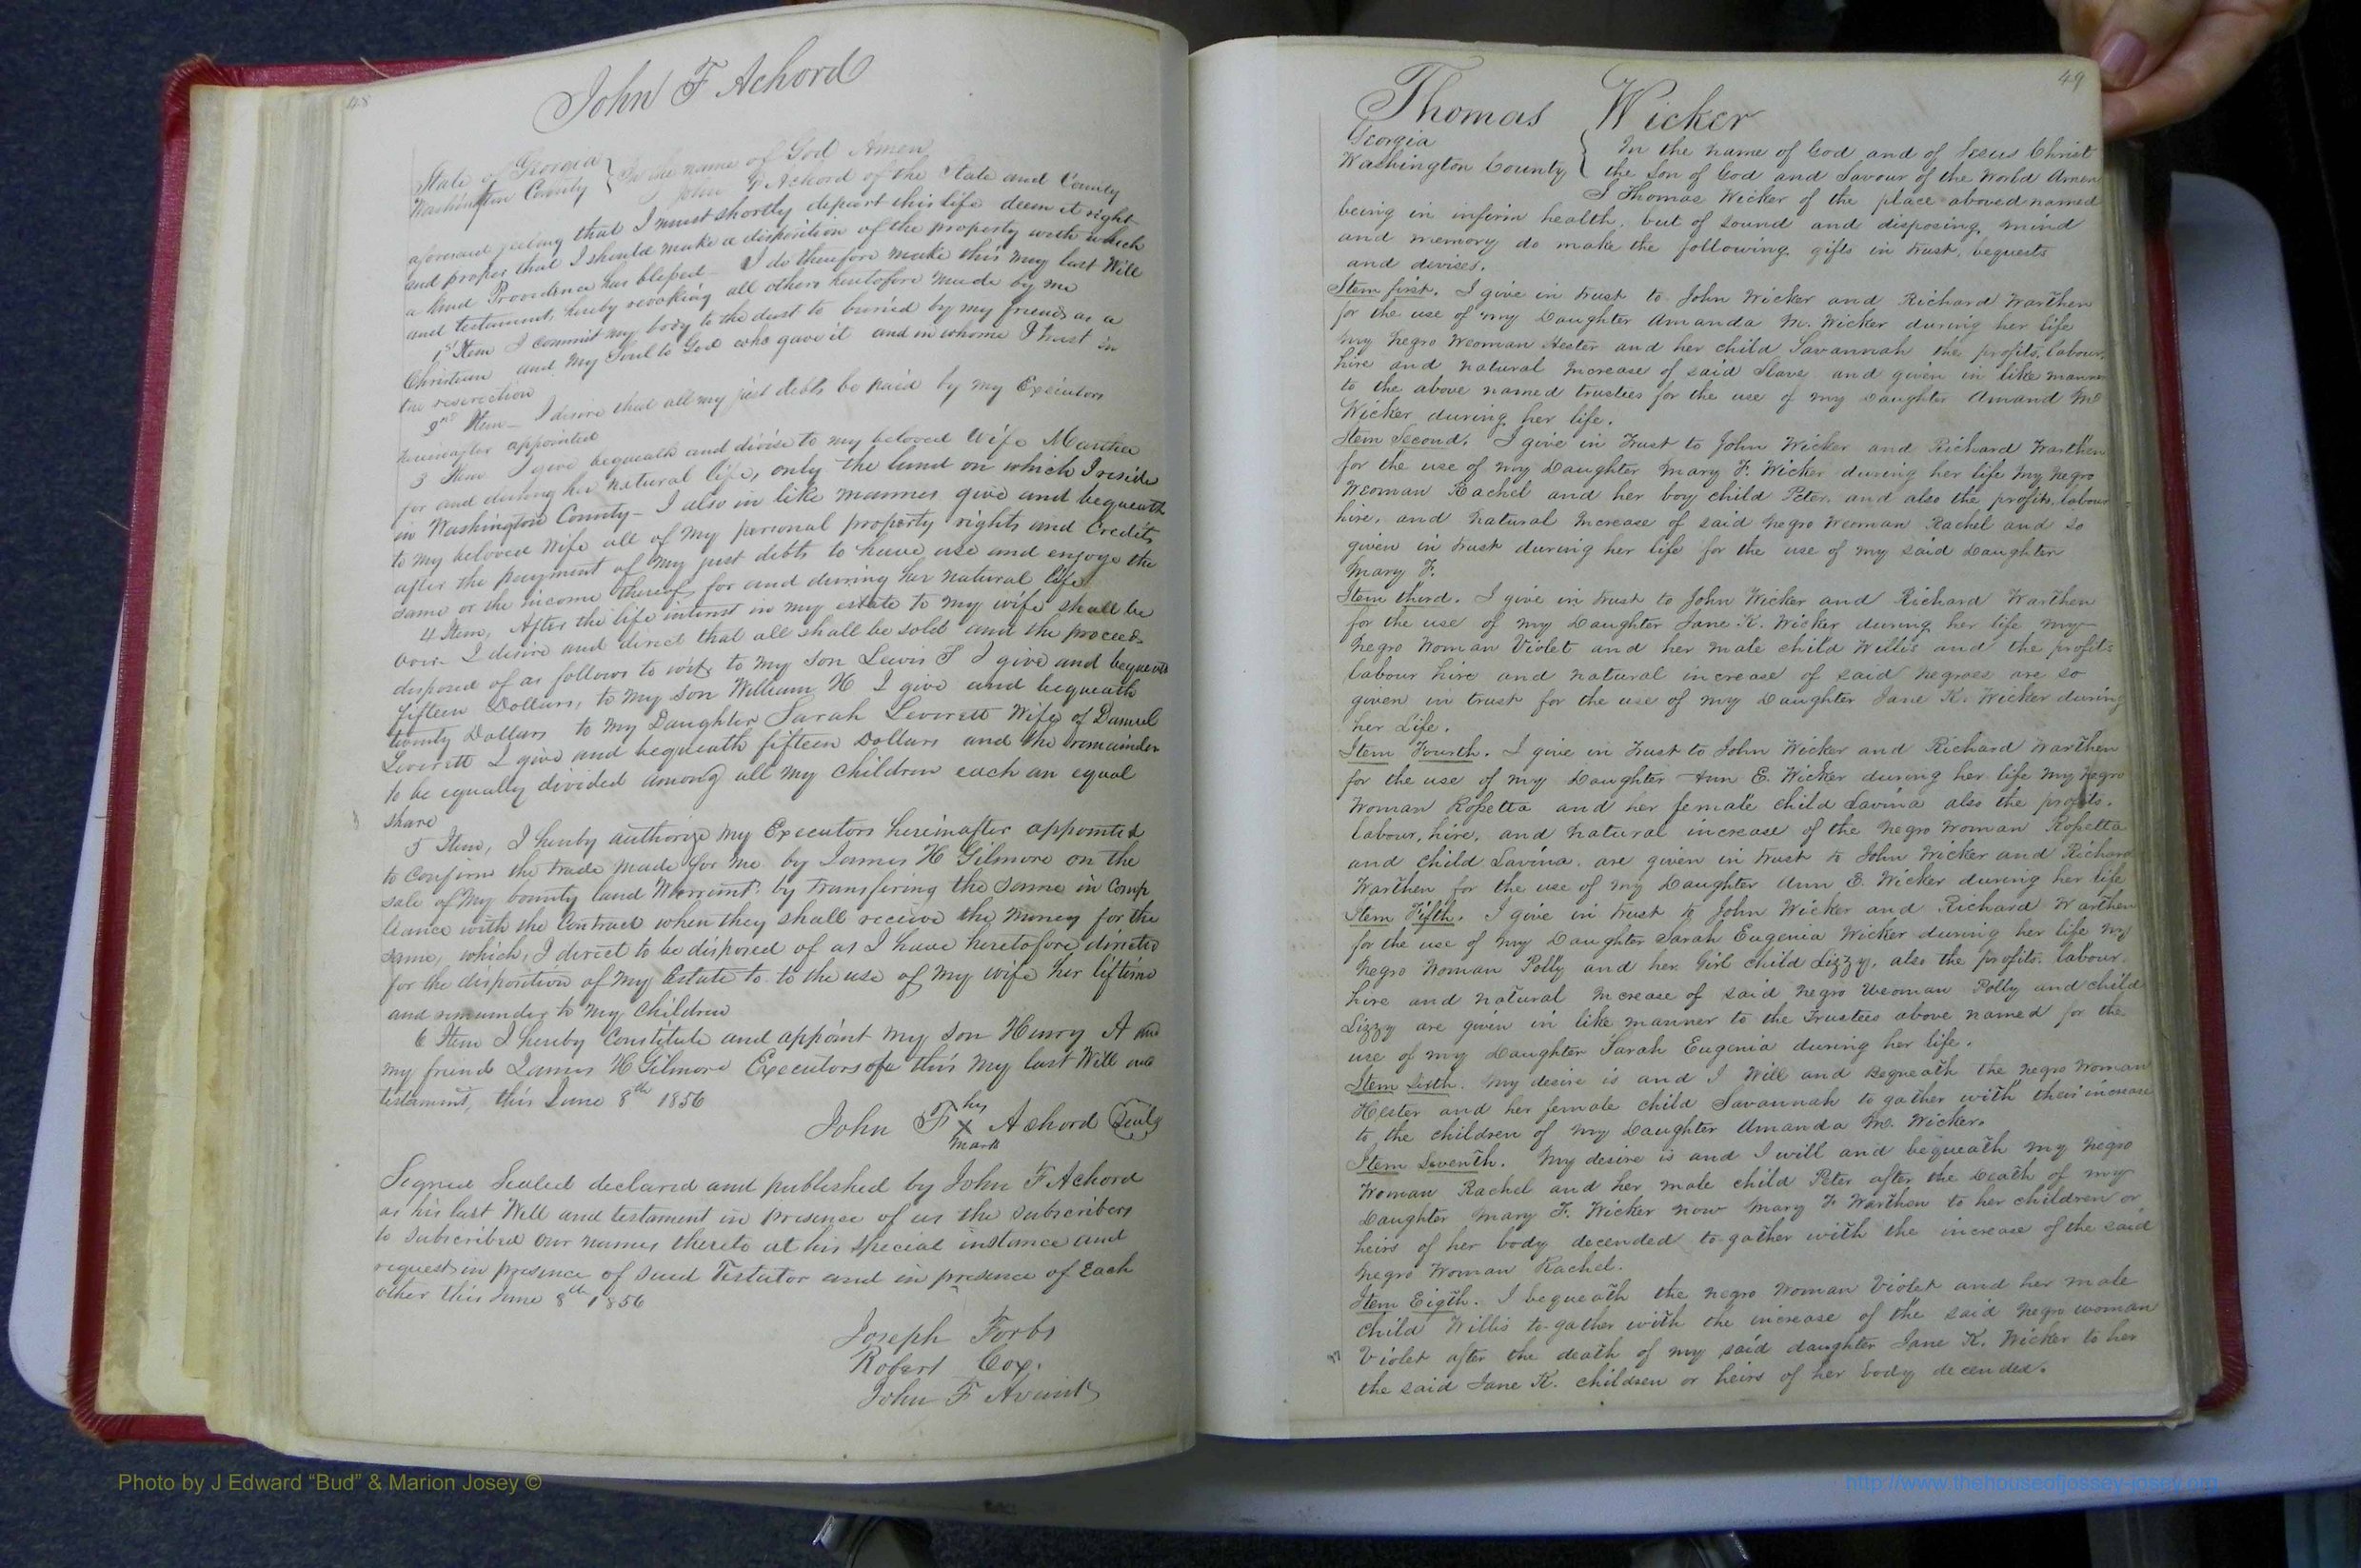 48
John F Achord
State of Georgia } In the name of God Amen
Washington County } John F Achord of the State and County
aforesaid feeling that I must shortly depart this life deem it right
and proper that I should make a disposition of the property with which
a kind Providence has blessed I do therefore make this my last Will
and testament, hereby revoking all others heretofore made by me
1st Item I commit my body to the dust to buried by my friends as a
Christian and my Soul to God who gave it and in whome I trust in
the reserection
2nd Item - I desire that all my just debts be paid by my Executors
hereinafter appointed
3 Item I give bequeath and divise to my beloved Wife Martha
for and during her natural life, only the land on which I reside
in Washington County - I also in like manner give and bequeath
to my beloved Wife all of my personal property rights and Credits
after the payment of my just debts to have use and enjoye the
same or the income thereof for and during her natural life
4 Item, After the life interest in my estate to my wife shall be
over I desire and direct that all shall be sold and the proceeds
disposed of as follows to wit, to my son Lewis S I give and bequeath
fifteen Dollars, to my son William H I give and bequeath
twenty Dollars to my Daughter Sarah Leverett Wife of Daniel
Leverett I give and bequeath fifteen Dollars and the remainder
to be equally divided among all my children each an equal
share
5 Item, I hereby authorize my Executors hereinafter appointed
to Confirm the trade made for me by James H Gilmore on the
sale of my bounty land Warrant by transfering the same in Comp
liance with the Contract when they shall receive the money for the
same, which, I direct to be disposed of as I have heretofore directed
for the disposition of my Estate to to the use of my wife her liftime
and remainder to my children
6 Item I hereby Constitute and appoint my son Henry A and
my friend James H Gilmore Executors of this my last Will and
testament, this June 8th 1856
his
John F X Achord Seal
mark
Signed Sealed declared and published by John F Achord
as his last Will and testament in presence of us the subscribers
to subscribed our names thereto at his special instance and
request in presence of said Testator and in presence of Each
other this June 8th 1856
Joseph Forbs
Robert Cox.
John F
49
Thomas Wicker
Georgia } In the name of God and of Jesus Christ
Washington County } the Son of God and Savour of the World Amen
I Thomas Wicker of the place aboved named
being in infirm health, but of sound and disposing mind
and memory do make the following gifts in trust, bequests
and devises.
Item first. I give in trust to John Wicker and Richard Warthen
for the use of my Daughter Amanda M. Wicker during her life
my negro Weoman Hester and her child Savannah the profits, labour,
hire and natural increase of said Slave and given in like manner
to the above named trusties for the use of my Daughter Amand M
Wicker during her life.
Item Second. I give in Trust to John Wicker and Richard Warthen
for the use of my Daughter Mary F. Wicker during her life my negro
Weoman Rachel and her boy child Peter. and also the profits, labour
hire, and natural increase of said negro Weoman Rachel and so
given in trust during her life for the use of my said Daughter
Mary F.
Item third. I give in trust to John Wicker and Richard Warthen
for the use of my Daughter Jane K. Wicker during her life my
negro Woman Violet and her male child Willis and the profits
labour hire and natural increase of said negroes are so
given in trust for the use of my Daughter Jane K. Wicker during
her Life.
Item Fourth. I give in Trust to John Wicker and Richard Warthen
for the use of my Daughter Ann E. Wicker during her life my negro
Woman Rosetta and her female child Lavina also the profits.
labour, hire, and natural increase of the negro Woman Rosetta
and child Lavina. are given in trust to John Wicker and Richard
Warthen for the use of my Daughter Ann E. Wicker during her life
Item Fifth. I give in trust to John Wicker and Richard Warthen
for the use of my Daughter Sarah Eugenia Wicker during her life my
negro Woman Polly and her Girl child Lizzy, also the profits. labour
hire and natural increase of said negro Weoman Polly and child
Lizzy are given in like manner to the Trustees above named for the
use of my Daughter Sarah Eugenia during her life.
Item Sixth. My desire is and I Will and Bequeath the negro Woman
Hester and her female child Savannah to gather with their increase
to the children of my Daughter Amanda M. Wicker.
Item Seventh. My desire is and I will and bequeath my negro
Woman Rachel and her male child Peter after the Death of my
Daughter Mary F. Wicker now Mary F. Warthen to her children or
heirs of her body decended to-gather with the increase of the said
negro Woman Rachel.
Item Eigth. I bequeath the negro Woman Violet and her male
child Willis to-gather with the increase of the said negro woman
Violet after the death of my said daughter Jane K. Wicker to her
the said Jane K. children or heirs of her body decended.
Photo by J Edward “Bud” & Marion Josey ©
http://www.thehouseofjossey-josey.org